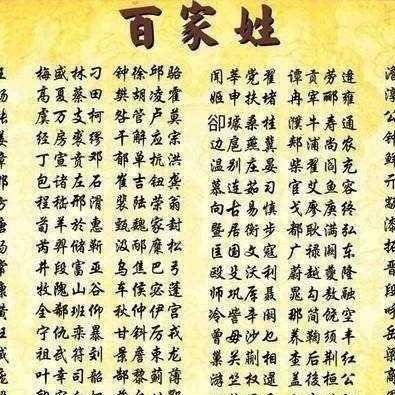 百家姓
梅盛林刁 钟徐邱骆 闻莘党翟 谭贡劳逄
高夏蔡田 樊胡凌霍 姬申扶堵 冉宰郦雍
虞万支柯 昝管卢莫 郤璩桑桂 濮牛寿通
经房裘缪 干解应宗 边扈燕冀 郏浦尚农
丁宣贲邓 郁单杭洪 温别庄晏 柴瞿阎充
包诸左石 崔吉钮龚 慕连茹习 宦艾鱼容
程嵇邢滑 裴陆荣翁 向古易慎 戈廖庾终
荀羊於惠 甄曲家封 暨居衡步 都耿满弘
芮羿储靳 汲邴糜松 匡国文寇 广禄阙东
井段富巫 乌焦巴弓 殴殳沃利 蔚越夔隆
牧隗山谷 车侯宓蓬 师巩厍聂 晁勾敖融
全郗班仰 秋仲伊宫 冷訾辛阚 那简饶空
宁仇栾暴 甘钭厉戎 曾毋沙乜 养鞠须丰
祖武符刘 景詹束龙 巢关蒯相 查后荆红
幸司韶 郜黎蓟薄 游竺权 盖益桓公